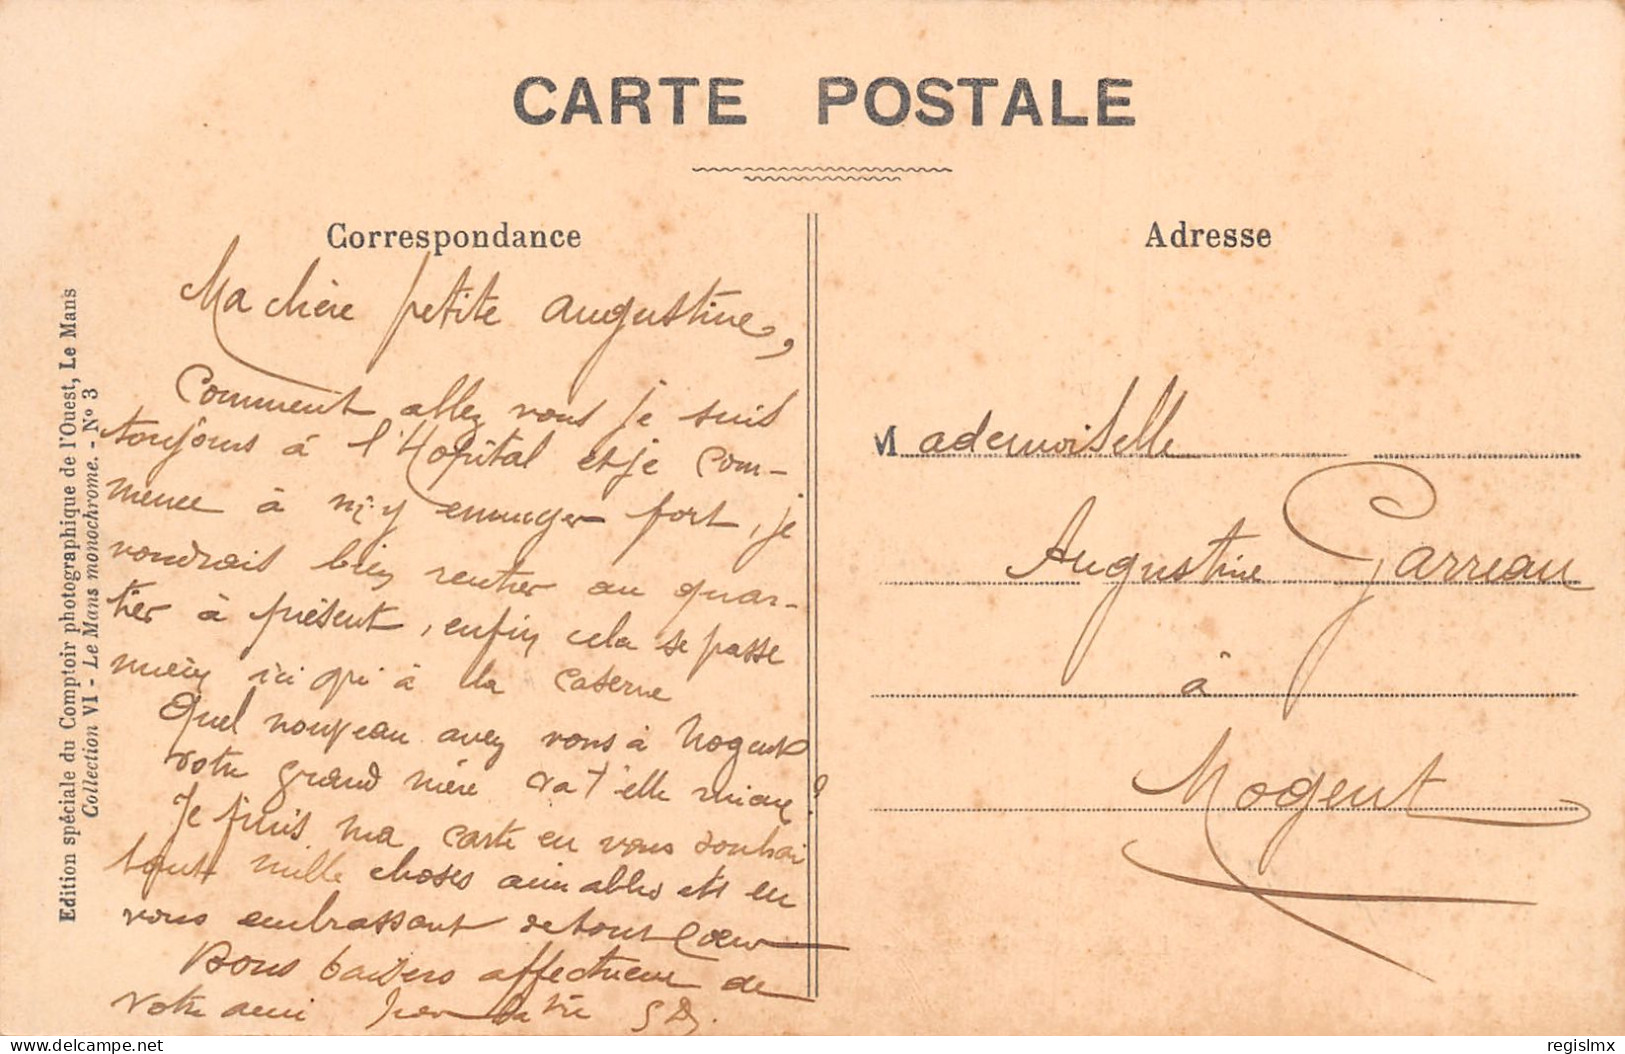 CARTE POSTALE
Correspondance
Ma chère petite Augustine,
Comment allez vous je suis
toujours à l'Hopital et je com-
mence à m'y ennuyer fort, je
voudrais bien rentrer au quar-
tier à présent, enfin cela se passe
mieux ici qu'à la caserne
Quel nouveau avez vous à Nogent
votre grand mère va t'elle mieux?
Je finis ma carte en vous souhai
tant mille choses aimables et en
vous embrassant de tout Cœur
Bons baisers affectueux de
votre ami
Adresse
Mademoiselle
Augustine Garreau
à
Nogent
Edition spéciale du Comptoir photographique de l'Ouest, Le Mans
Collection VI - Le Mans monochrome. - Nº 3
delcampe.net
regislmx